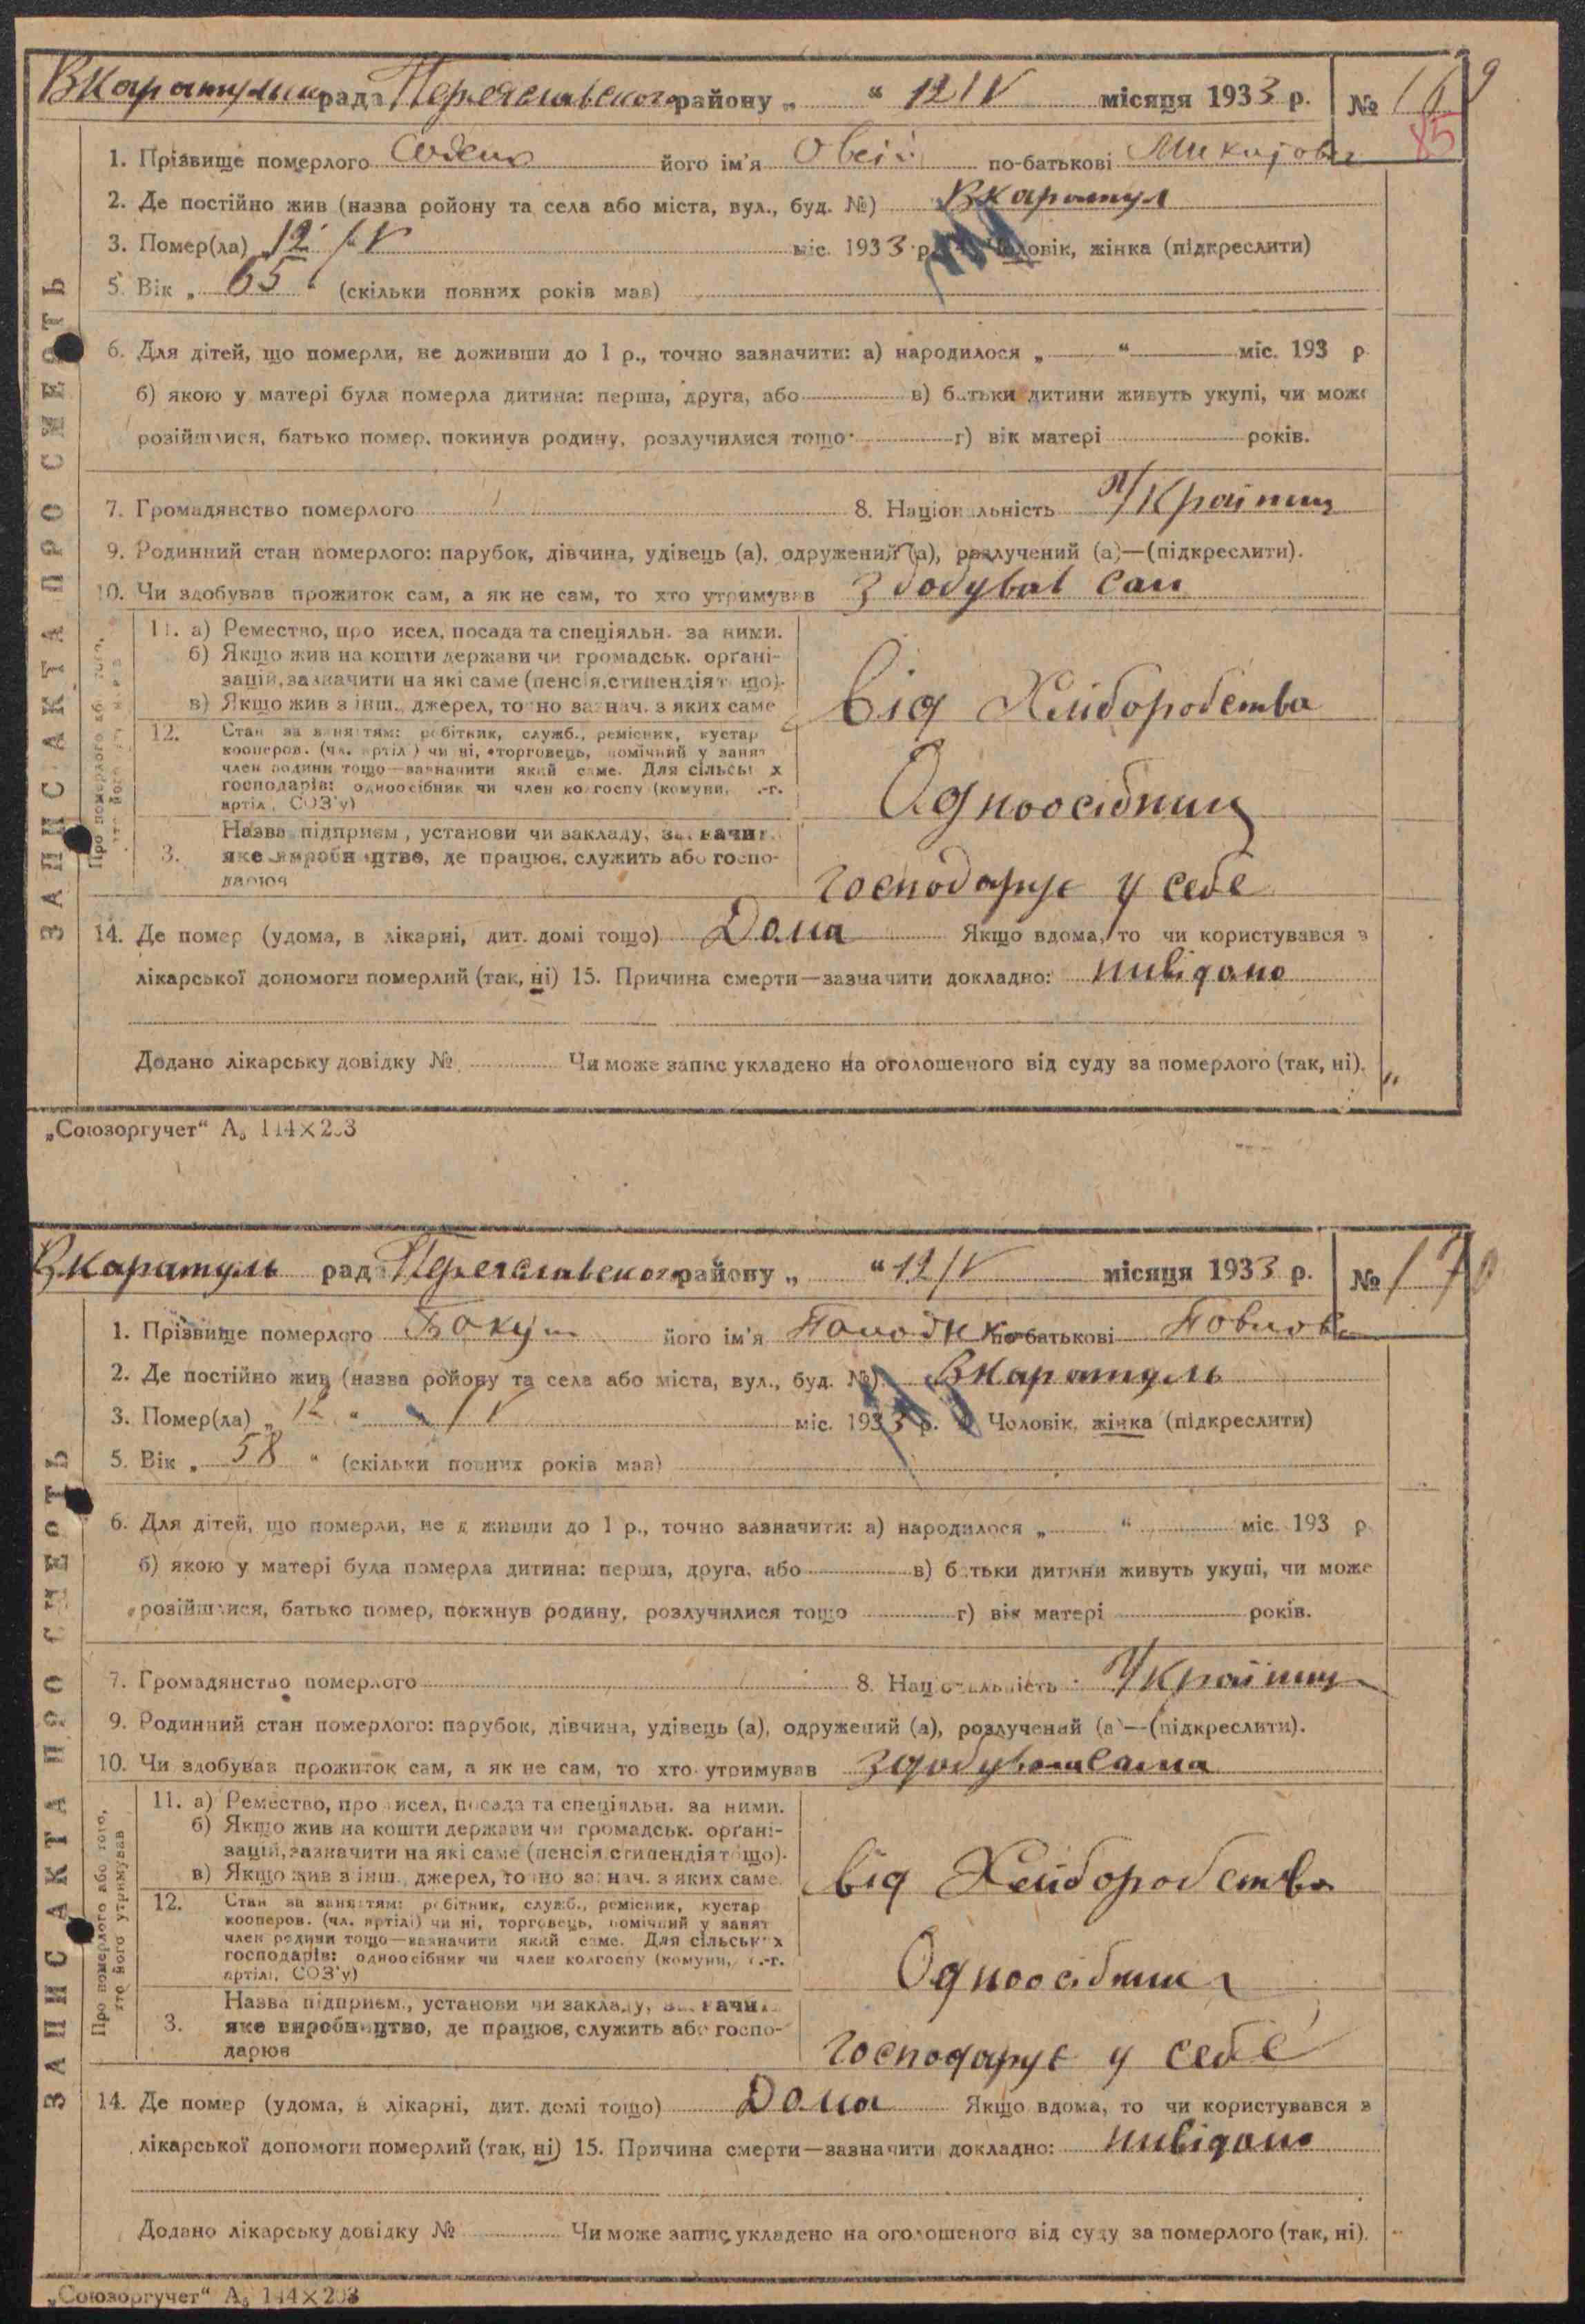 ВКаратульська рада Переяславського району „ “ 12/V місяця 1933 р. № 169
85
1. Прізвище померлого його ім'я Овсій по-батькові
2. Де постійно жив (назва ройону та села або міста, вул., буд. №) ВКаратул
3. Помер(ла) „12“ /V міс. 1933 р. Чоловік, жінка (підкреслити)
5. Вік „ 65 “ (скільки повних років мав)
6. Для дітей, що померли, не доживши до 1 р., точно зазначити: а) народилося „ “ міс. 193 р.
б) якою у матері була померла дитина: перша, друга, або в) батьки дитини живуть укупі, чи може
розійшлися, батько помер, покинув родину, розлучилися тощо г) вік матері років.
7. Громадянство померлого 8. Національність Україниц
9. Родинний стан померлого: парубок, дівчина, удівець (а), одружений (а), розлучений (а)—(підкреслити).
10. Чи здобував прожиток сам, а як не сам, то хто утримував Здобував сам
11. а) Ремество, промисел, посада та спеціяльн. за ними.
б) Якщо жив на кошти держави чи громадськ. органі-
зацій, зазначити на які саме (пенсія, стипендія тощо).
в) Якщо жив з інш. джерел, точно зазнач. з яких саме
від Хліборобства
12. Стан за заняттям: робітник, служб., ремісник, кустар
кооперов. (чл. артілі) чи ні, торговець, помічний у занят
член родини тощо—зазначити який саме. Для сільських
господарів: одноосібник чи член колгоспу (комуни, с.-г.
артілі, СОЗ'у)
Одноосібниц
3. Назва підприєм., установи чи закладу, зазначить
яке виробництво, де працює, служить або госпо-
дарює
господарує у себе
14. Де помер (удома, в лікарні, дит. домі тощо) Дома Якщо вдома, то чи користувався з
лікарської допомоги померлий (так, ні) 15. Причина смерти—зазначити докладно: нивідомо
Додано лікарську довідку № Чи може запис укладено на оголошеного від суду за померлого (так, ні).
ЗАПИС АКТА ПРО СМЕРТЬ
Про померлого або того,
хто його утримував
„Союзоргучет“ А₅ 144×203
ВКаратуль рада Переяславського району „ “ 12/V місяця 1933 р. № 170
1. Прізвище померлого Бакум його ім'я по-батькові Повлова
2. Де постійно жив (назва ройону та села або міста, вул., буд. №) ВКаратуль
3. Помер(ла) „ 12 “ /V міс. 1933 р. Чоловік, жінка (підкреслити)
5. Вік „ 58 “ (скільки повних років мав)
6. Для дітей, що померли, не доживши до 1 р., точно зазначити: а) народилося „ “ міс. 193 р.
б) якою у матері була померла дитина: перша, друга, або в) батьки дитини живуть укупі, чи може
розійшлися, батько помер, покинув родину, розлучилися тощо г) вік матері років.
7. Громадянство померлого 8. Національність Україниц
9. Родинний стан померлого: парубок, дівчина, удівець (а), одружений (а), розлучений (а)—(підкреслити).
10. Чи здобував прожиток сам, а як не сам, то хто утримував Здобувала сама
11. а) Ремество, промисел, посада та спеціяльн. за ними.
б) Якщо жив на кошти держави чи громадськ. органі-
зацій, зазначити на які саме (пенсія, стипендія тощо).
в) Якщо жив з інш. джерел, точно зазнач. з яких саме.
від Хліборобства
12. Стан за заняттям: робітник, служб., ремісник, кустар
кооперов. (чл. артілі) чи ні, торговець, помічний у занят
член родини тощо—зазначити який саме. Для сільських
господарів: одноосібник чи член колгоспу (комуни, с.-г.
артілі, СОЗ'у)
Одноосібниц
3. Назва підприєм., установи чи закладу, зазначить
яке виробництво, де працює, служить або госпо-
дарює
господарує у себе
14. Де помер (удома, в лікарні, дит. домі тощо) Дома Якщо вдома, то чи користувався з
лікарської допомоги померлий (так, ні) 15. Причина смерти—зазначити докладно: нивідомо
Додано лікарську довідку № Чи може запис укладено на оголошеного від суду за померлого (так, ні).
ЗАПИС АКТА ПРО СМЕРТЬ
Про померлого або того,
хто його утримував
„Союзоргучет“ А₅ 144×203